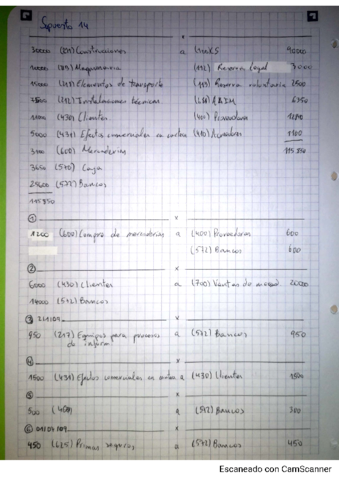 Supuesto 14
30000 (211) Construcciones a 90000
(213) Maquinaria (112) Reserva legal 7000
(218) Elementos de transporte (113) Reserva voluntaria 2500
(212) Instalaciones técnicas
(430) Clientes (400) Proveedores
5000 (431) Efectos comerciales en cartera (410) Acreedores 1100
(600) Mercaderías 115 850
(570) Caja
(572) Bancos
115850
① x
1200 (600) Compra de mercaderías a (400) Proveedores 600
(572) Bancos 600
② x
6000 (430) Clientes a (700) Ventas de 20000
14000 (572) Bancos
③ x
950 (217) Equipos para procesos a (572) Bancos 950
de inform.
④ x
1500 (431) Efectos comerciales en cartera a (430) Clientes 1500
⑤ x
300 (400) a (572) Bancos 300
⑥ x
450 (625) Primas seguros a (572) Bancos 450
Escaneado con CamScanner